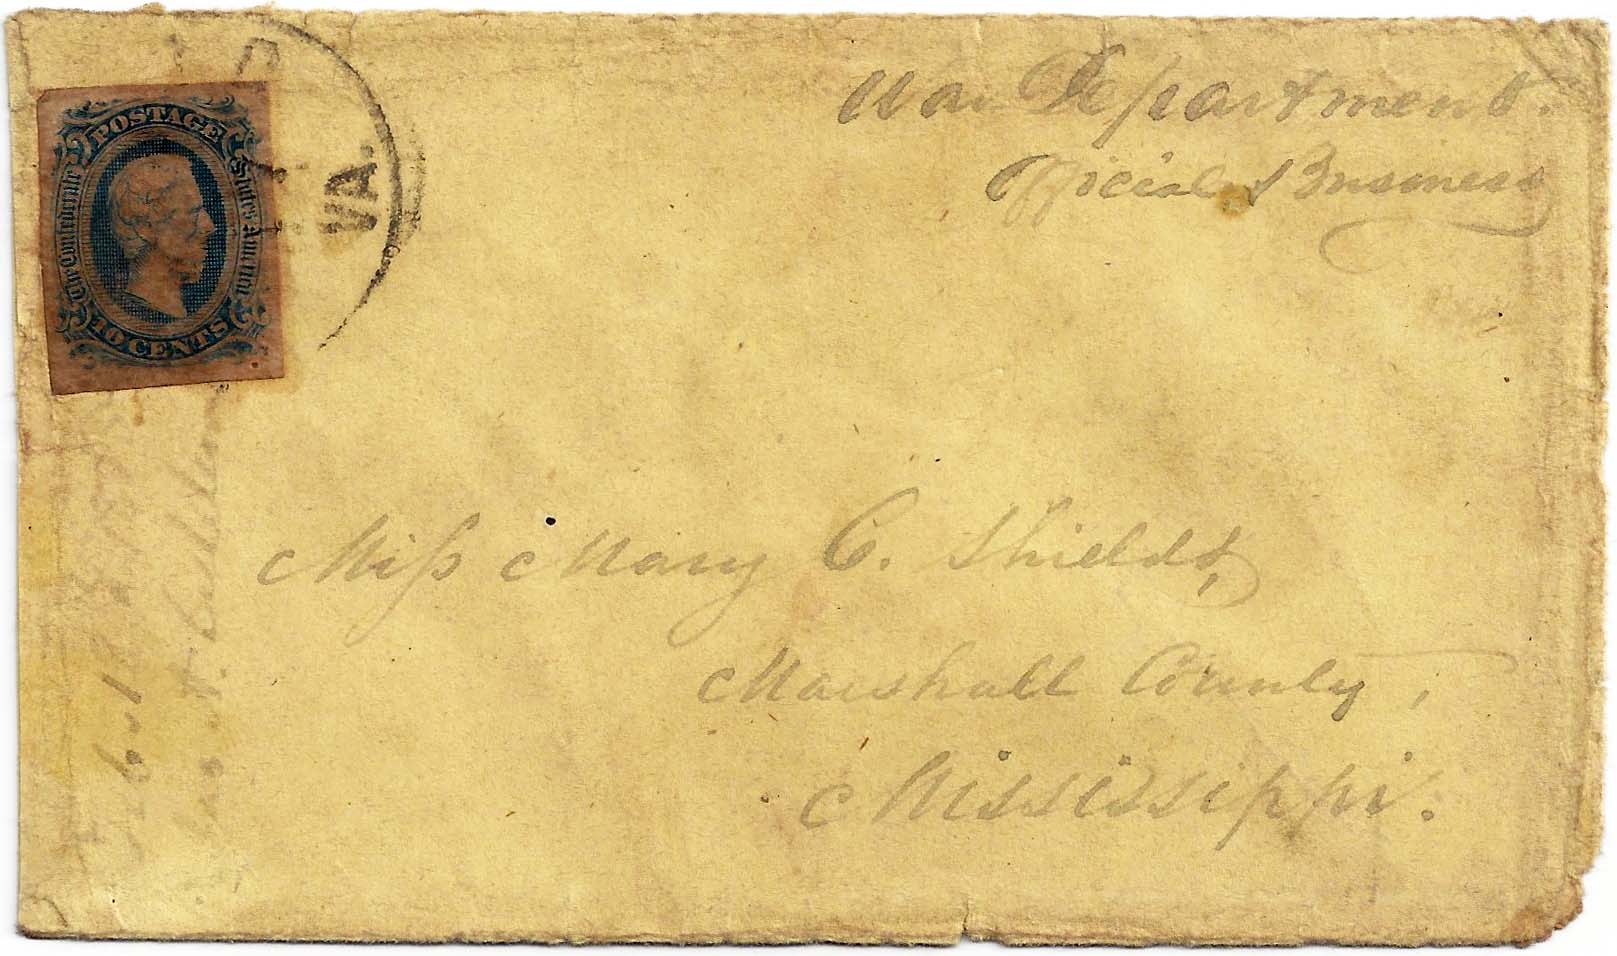 War Department.
Official Business
POSTAGE
The Confederate States America
10 CENTS
VA.
Miss Mary C. Shields,
Marshall County,
Mississippi.